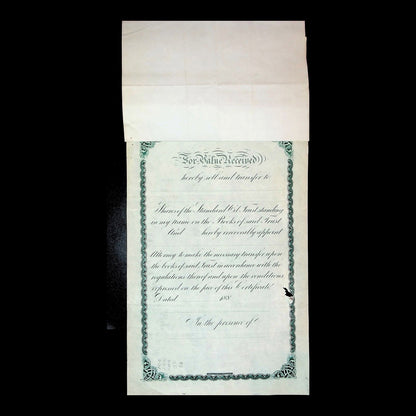 For Value Received
hereby sell and transfer to
Shares of the Standard Oil Trust standing
in my name on the Books of said Trust
And hereby irrevocably appoint
Attorney to make the necessary transfer upon
the books of said Trust in accordance with the
regulations thereof and upon the conditions
expressed on the face of this Certificate
Dated 188
In the presence of